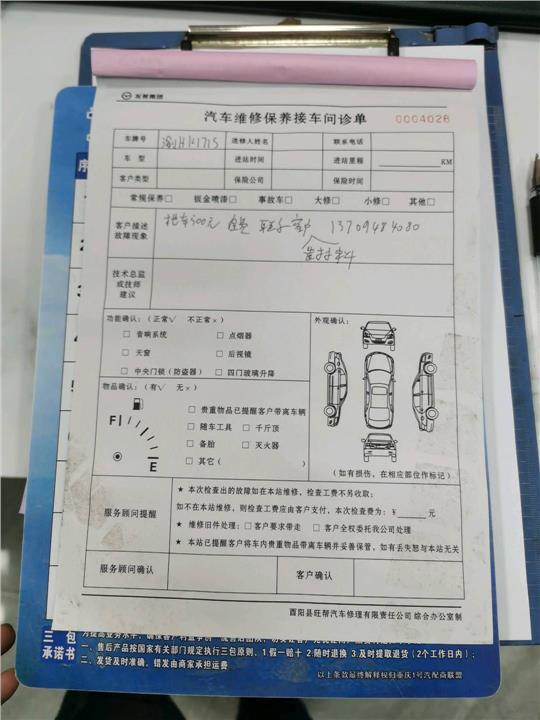 友帮集团
汽车维修保养接车问诊单
0004028
车牌号 渝H1K1715 送修人姓名 联系电话
车 型 进站时间 进站里程 KM
客户类型 保险公司 保险时间
常规保养□ 钣金喷漆□ 事故车□ 大修□ 小修□ 其他□
客户描述
故障现象
拖车300元 13709484080
技术总监
或技师
建议
功能确认：（正常√ 不正常×） 外观确认：
□ 音响系统 □ 点烟器
□ 天窗 □ 后视镜
□ 中央门锁（防盗器） □ 四门玻璃升降
物品确认：（有√ 无×）
□ 贵重物品已提醒客户带离车辆
F □ 随车工具 □ 千斤顶
□ 备胎 □ 灭火器
E □ 其它（ ）
（如有损伤，在相应部位作标记）
服务顾问提醒
★ 本次检查出的故障如在本站维修，检查工费不另收取；
如不在本站维修，则检查工费应由客户支付，本次检查费为：￥ 元
★ 维修旧件处理：□ 客户要求带走 □ 客户全权委托我公司处理
★ 本站已提醒客户将车内贵重物品带离车辆并妥善保管，如有丢失恕与本站无关
服务顾问确认 客户确认
酉阳县旺帮汽车修理有限责任公司 综合办公室制
三 包
承诺书
二、售后产品按国家有关部门规定执行三包原则、1·假一赔十 2·随时退换 3·及时提取退货（2个工作日内）；
二、发货及时准确、错发由商家承担运费
以上条款最终解释权归重庆1号汽配商联盟